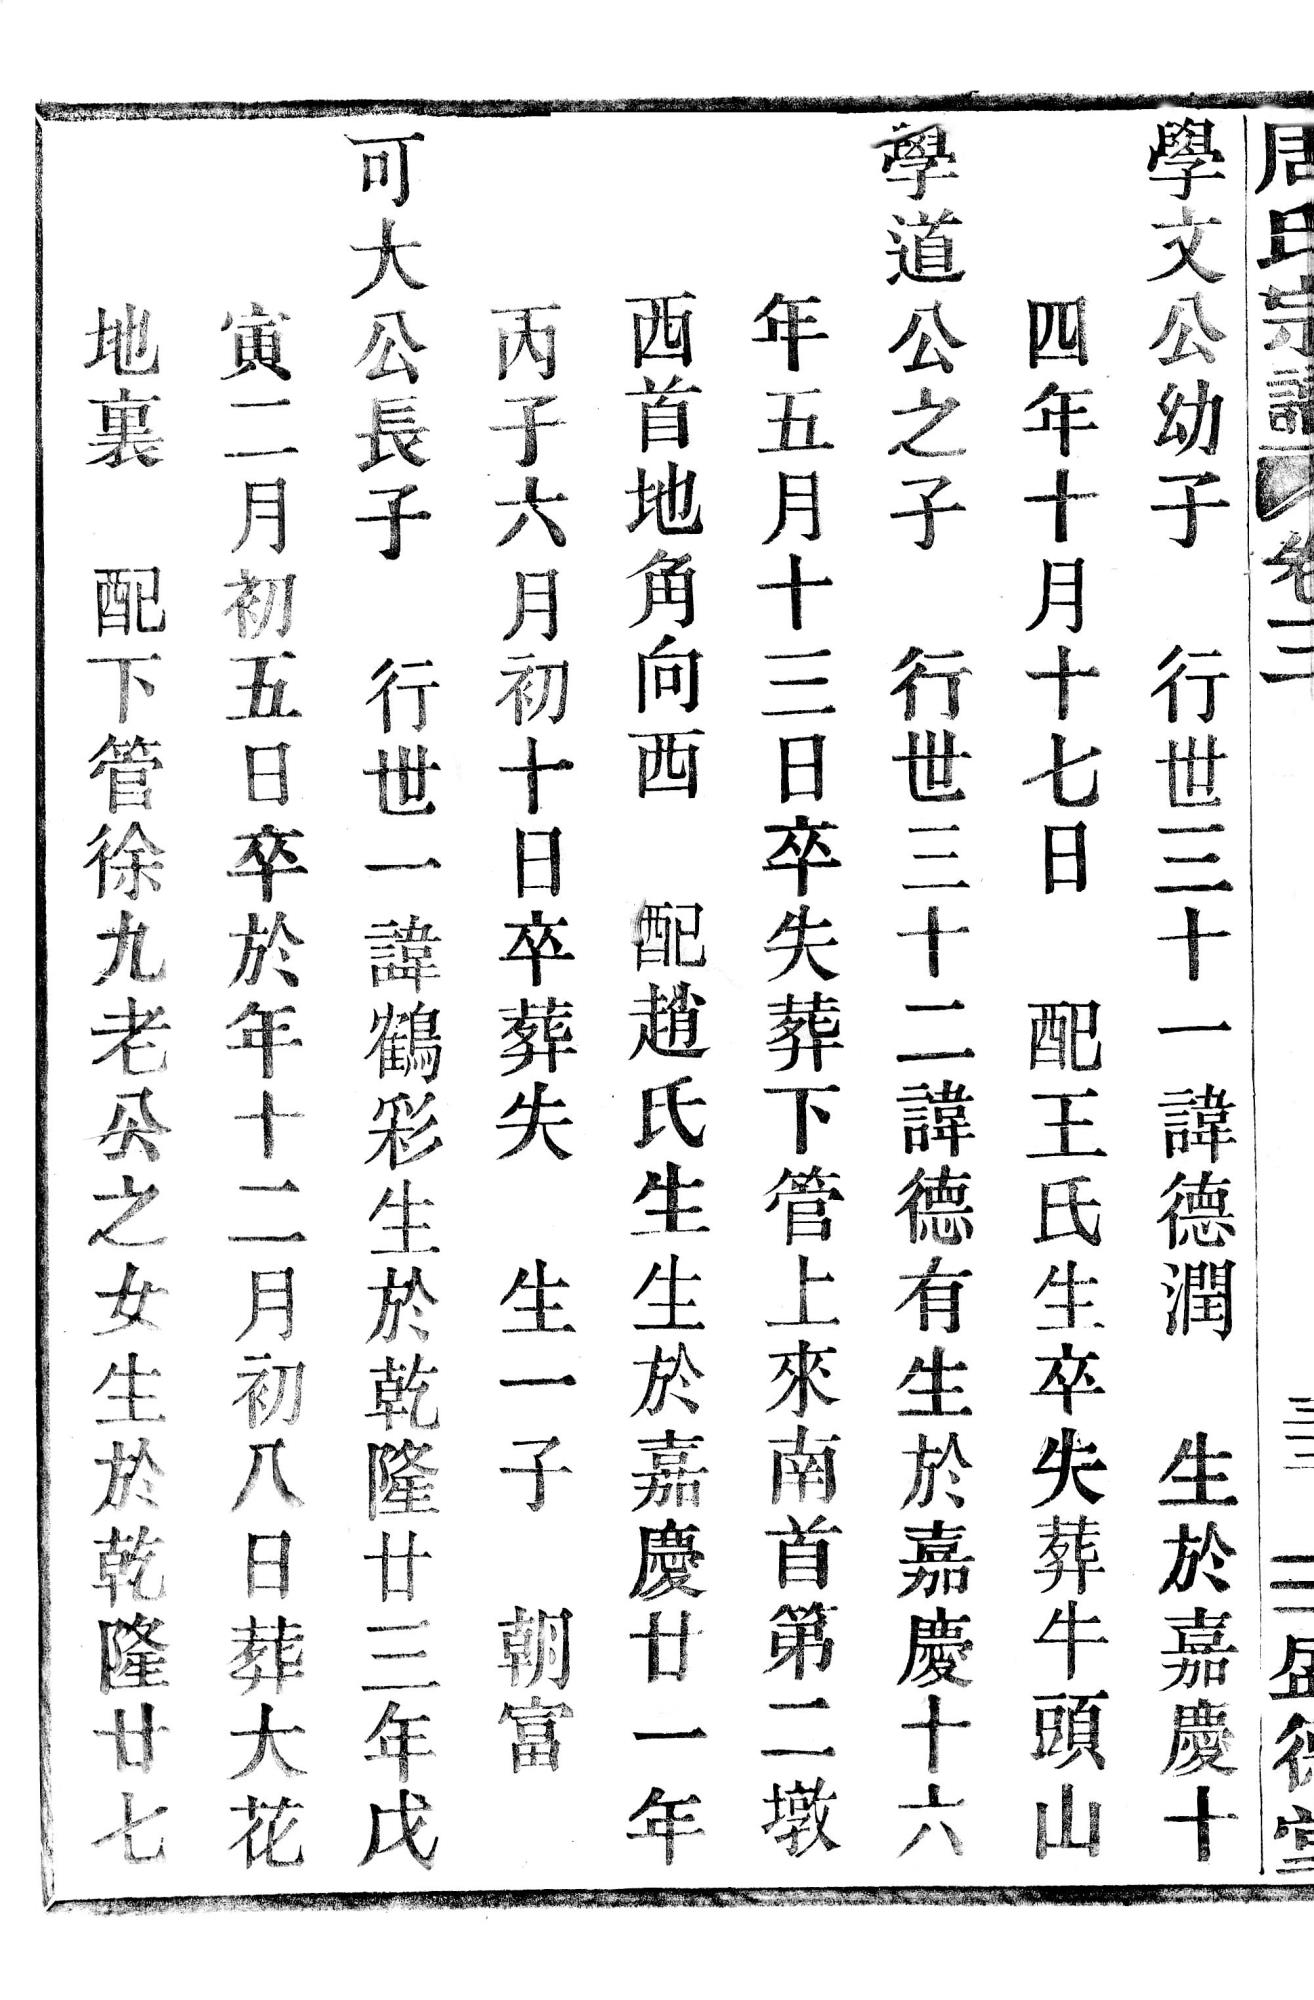 周氏宗譜 卷三 三二 三盛德堂
學文公幼子 行世三十一諱德潤 生於嘉慶十
四年十月十七日 配王氏生卒失葬牛頭山
學道公之子 行世三十二諱德有生於嘉慶十六
年五月十三日卒失葬下管上來南首第二墩
西首地角向西 配趙氏生生於嘉慶廿一年
丙子六月初十日卒葬失 生一子 朝富
可大公長子 行世一諱鶴彩生於乾隆廿三年戊
寅二月初五日卒於年十二月初八日葬大花
地裏 配下管徐九老公之女生於乾隆廿七